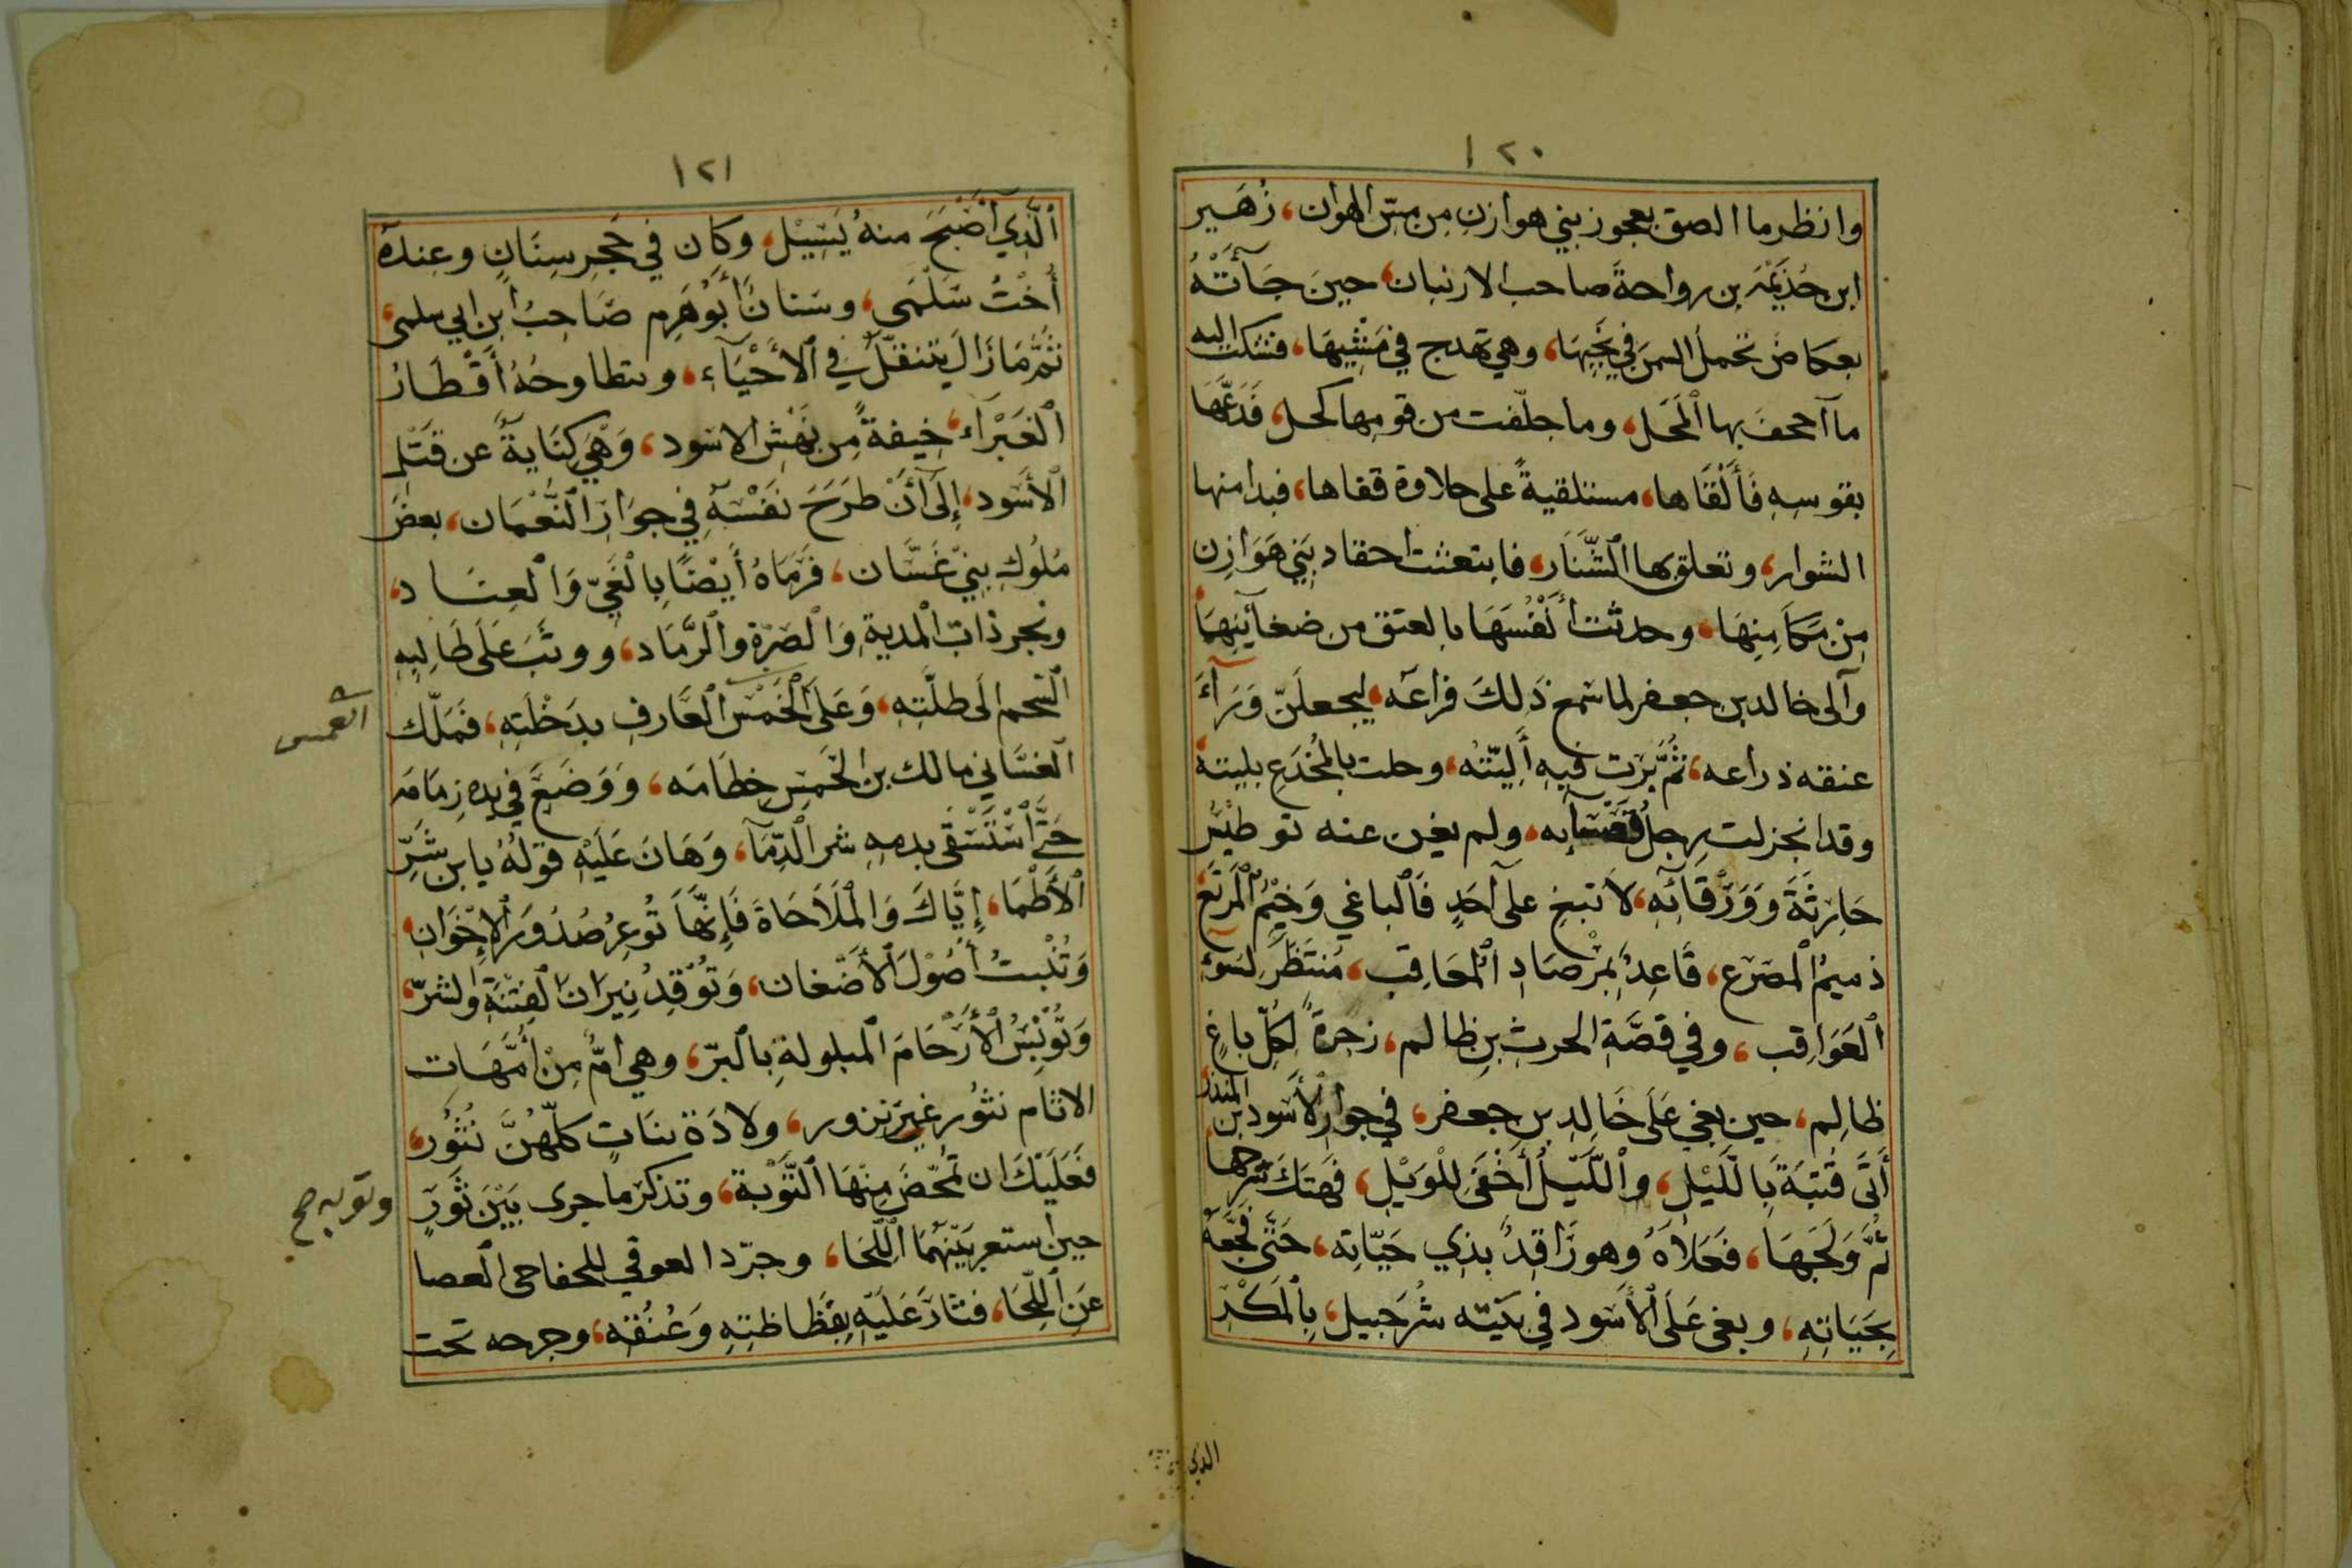 ١٢٠
وانظر ما الصق بعجوز بني هوازن من مسّ الهوان، زُهَير
ابن جُذَيْمَة بن رواحة صاحب الارنبان، حينَ جَآءَتْهُ
بعكاض تحمل السمن في نِحْيِهَا، وهي تهدج في مَشْيِهَا، فشكت اليه
ما آجحفَ بها اَلْمَحَل، وما جلّفت من قومها كحل، فَدَعَّهَا
بقوسِهِ فَأَلْقَاها، مستلقيةً على حلاوة قفاها، فبدا منها
الشوار، وتعلق بها اَلشَّنَار، فابتعثت احقاد بَنِي هَوَازِن
مِنْ مَكَامِنِهَا، وحدثت أَنْفُسَهَا بالعتق من ضغآئِنِهَا
وآلى خالد بن جعفر لما سَمِعَ ذَلِكَ فراعَه، ليجعلَنّ وَرَآءَ
عنقه ذراعه، ثُمَّ بَرَت فيه أَلِيَّتُه، وحلت بالمُجْدَعِ بليته
وقد انجزلت رجلُ قصابه، ولم يغن عنه تو طيْرُ
حَارِثَةَ وَوَرْقَائَهِ، لا تبغِ علَى آحَدٍ فَاَلباغي وَخِيْمُ اَلْمَرتَع
ذميمُ اَلْمصَرع، قَاعِدٌ بِمْرصَادِ اَلْمعَاقِب، مُنتَظَرٌ لِسَوءِ
اَلعَوَاقِب، وفي قصَّةِ الحرث بن ظالم، زجرةٌ لِكُلِّ باغٍ
ظالِم، حين بغي عَلَى خَالِد بن جعفر، في جوار اَلأَسَود بن المنذر
أَتَى قُبتَهُ بِاللَّيْلِ، واَللَّيْلُ أَخْفَى لِلْوَيْلِ، فهَتَكَ شرجها
ثُمَّ وَلَجَهَا، فَعَلاَهُ وهو رَاقِدٌ بذِي حَيّاته، حَتَّى فَجَّعَهُ
بِحَيَاتِهِ، وبغى عَلَى اَلأَسَود في بَيْته شُرَحْبيل، بِاَلْمَكْرِ
الذي
١٢١
اَلَّذِي أَصْبَحَ منهُ يَسِيْل، وكان في حَجرِ سِنَانٍ وعِندهُ
أُخْتُ سَلْمَى، وسَنانٌ أَبُوْ هَرِم صَاحِبُ ابن ابي سلمى،
ثُمَّ مَا زَالَ يتنقلُ فِي اَلأَحْيَآءِ، وتتطاوحُهُ أَقْطَارُ
اَلْغَبْرَآء، خِيفةً مِن نَهْشِ الاسود، وَهْيَ كِنَايةٌ عن قَتْلِ
اَلأَسَود، إِلَى أَنْ طَرَحَ نَفْسَهُ فِي جوَار اَلنُّعْمَان، بعضَ
مُلُوكِ بَنِيْ غَسَّان، فَرَمَاهُ أَيْضًا بِالْغَيّ وَالْعِنَاد،
ونحر ذات اَلْمديةِ وَالْصَرّة واَلرَّمَاد، ووثَبَ عَلَى طَالِبِهِ
اَلتحم الَى طلَّتِهِ، وَعَلَى اَلْخَمْسِ اَلعَارفِ بدَخْلَتِهِ، فَمَلّك
اَلغسَّاني مالك بن الخمس خِطَامَه، وَوَضَعَ في يده زِمَامَه
حَتَّى اَسْتَسْقَى بدمهِ شر اَلدِّمَآ، وَهَانَ عَلَيْهِ قولهُ يا بن شَرِّ
اَلأَظْمَا، إِيَّاكَ وَالْمَلاَحَاةَ فَإِنَّهَا تُوْعِرُ صُدُوَر اَلإِخْوَان،
وَتُنْبتُ أُصُوْلَ اَلأَضْغان، وَتُوْقِدُ نِيرَانَ اَلْفِتْنَةِ والشرّ،
وَتُوْبِسُ اَلأَرْحَامَ اَلمبلولةِ بِاَلبرّ، وهي أمٌّ مِنْ أُمَّهَات
الاثام نثُور غيرَ نزور، ولادَة بَنَاتٍ كلّهُنَّ نُثُوْر،
فَعَلَيْكَ ان تمحّضَ مِنْهَا اَلتَّوْبة، وتذكر ما جرى بَيْنَ ثَورٍ
حين استعر بَيْنَهُمَا اَللِّحَا، وجرّد العوقي للحفاحى اَلعصا
عَنِ اَللِّحَا، فثارَ عَلَيْهِ بِفَظَاظتِهِ وَعُنْفِه، وجرحه تحت
الخمس
وتوبه صح